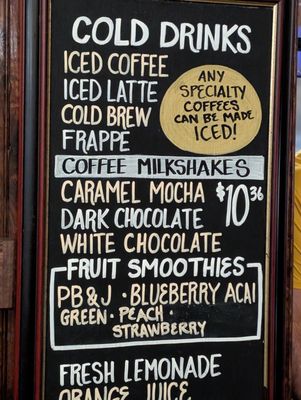 COLD DRINKS
ICED COFFEE
ICED LATTE
COLD BREW
FRAPPE
ANY
SPECIALTY
COFFEES
CAN BE MADE
ICED!
COFFEE MILKSHAKES
CARAMEL MOCHA
DARK CHOCOLATE
WHITE CHOCOLATE
$10.36
FRUIT SMOOTHIES
PB & J · BLUEBERRY ACAI
GREEN · PEACH ·
STRAWBERRY
FRESH LEMONADE
ORANGE JUICE